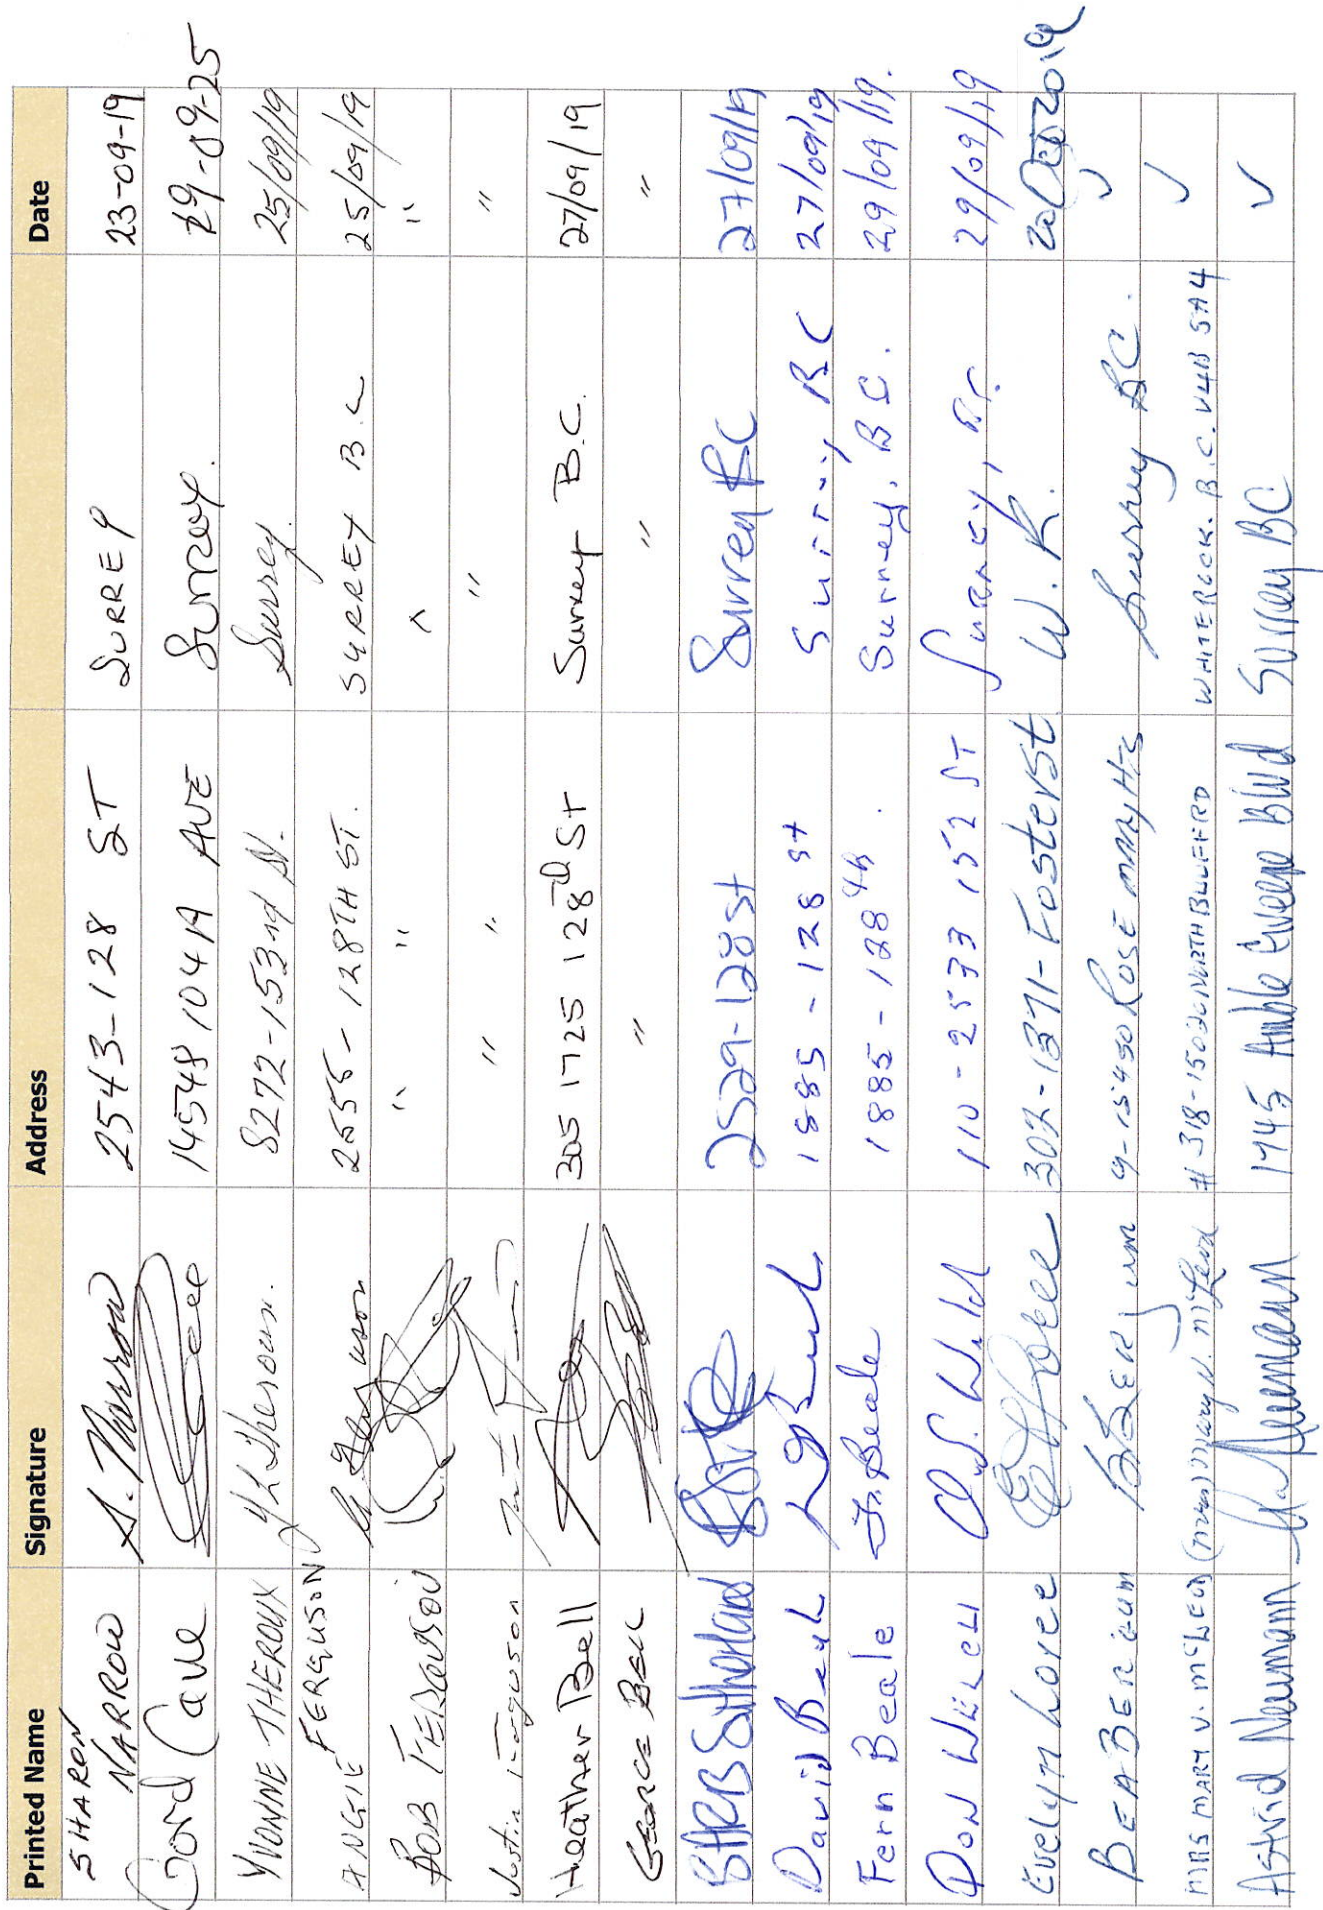 Printed Name Signature Address Date
SHARON NARROW S. Narrow 2543-128 ST SURREY 23-09-19
Gord Cave 14548 104A AVE Surrey. 19-09-25
YVONNE THEROUX Y L Theroux. 8272-153rd St. Surrey. 25/09/19
ANGIE FERGUSON 2555-128TH ST. SURREY B.C 25/09/19
BOB FERGUSON " " " "
Justin Ferguson " " " "
Heather Bell 305 1725 128th St Surrey B.C. 27/09/19
GEORGE BELL " " "
BARB Sutherland 2529-128 St Surrey BC 27/09/19
David Beale 1885-128 St Surrey BC 27/09/19
Fern Beale F. Beale 1885-128th. Surrey, BC. 29/09/19.
DON WELCH 110-2533 152 ST Surrey, BC. 29/09/19
Evelyn 302-1371-Foster St W.R. 2019
9-15450 Rosemary Hts Surrey BC. ✓
MRS MARY V. MCLEOD (Mrs) Mary V. McLeod #318-15020 NORTH BLUFF RD WHITEROCK. B.C. V4B 5A4 ✓
Astrid Neumann A. Neumann 1745 Amble Greene Blvd Surrey BC ✓